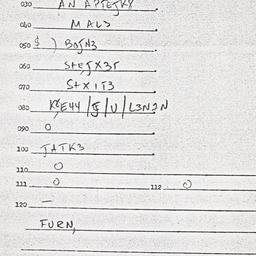 030 AN APTEJKX
040 MAL3
050 $ ) BOJN3
060 S+EJX3T
070 S+X1T3
080
090 O
100 JATK3
110 O
111 O 112 O
120 —
FURN,